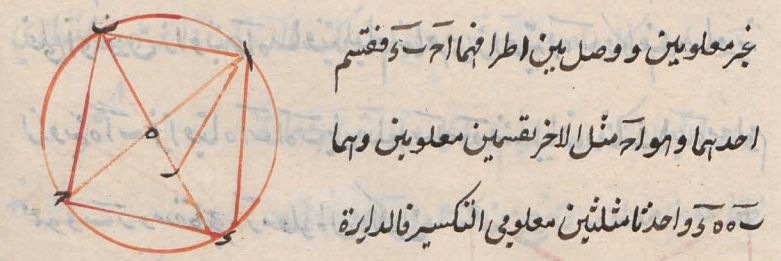 غير معلومين ووصل بين اطرافهما اح ب د فقسم
احدهما وهو اح مثل الاخر بقسمين معلومين وهما
ب ه ه د واحدثا مثلثين معلومى التكسير فالدايرة
ب
ا
ه
ر
ح
د